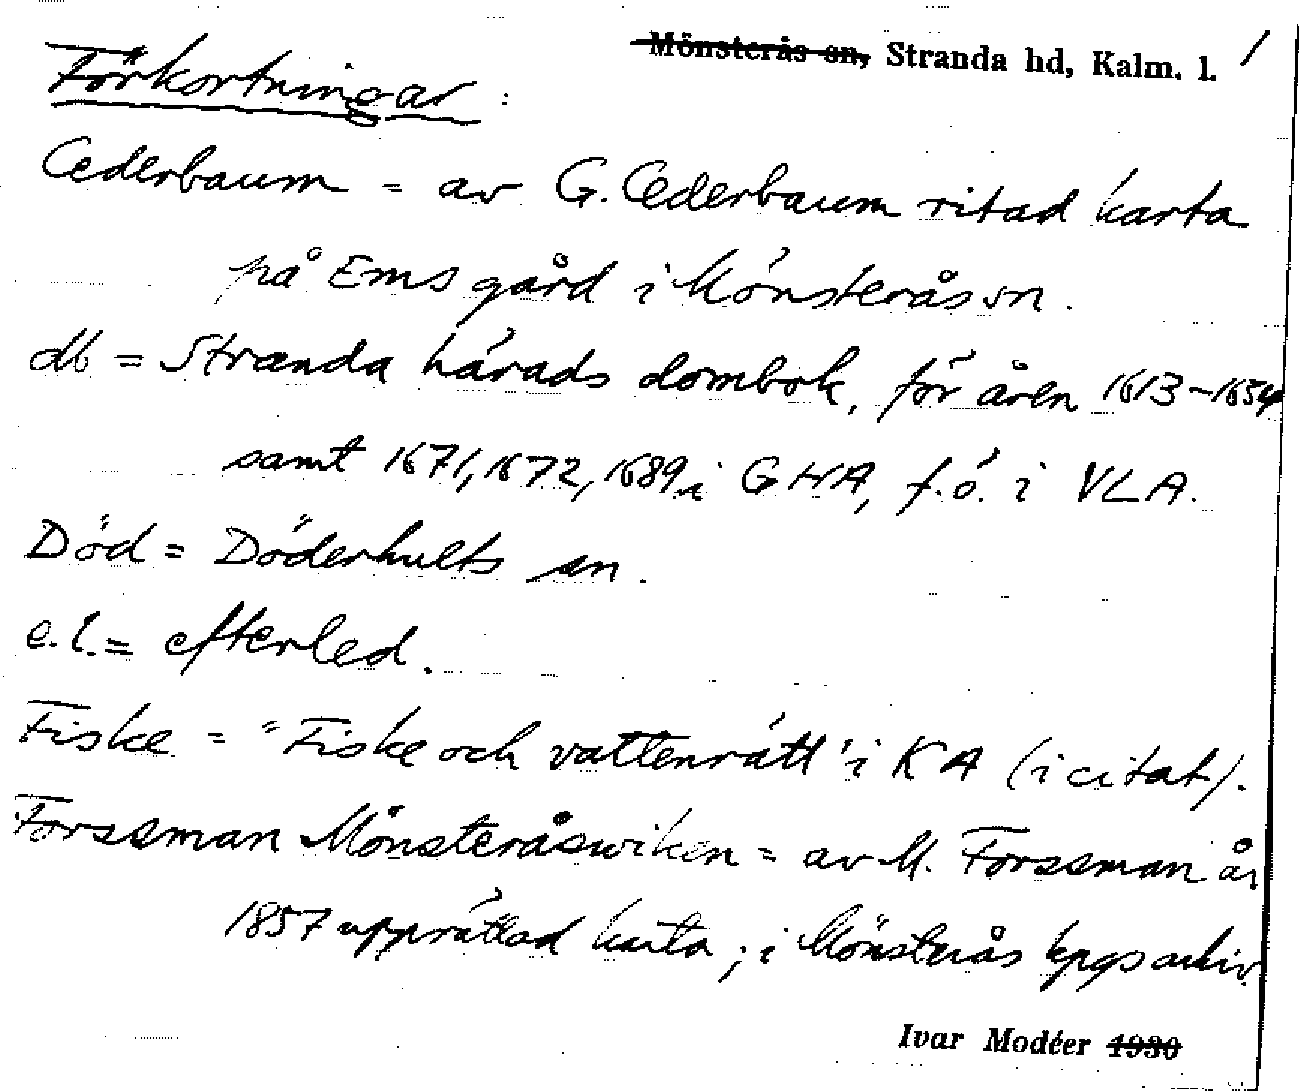 Mönsterås sn, Stranda hd, Kalm. l. 1
Förkortningar :
Cederbaum = av G. Cederbaum ritad karta
på Ems gård i Mönsterås sn.
db = Stranda härads dombok, för åren 1613-1654
samt 1671, 1672, 1689 i GHA, f.ö. i VLA.
Död = Döderhults sn.
e.l. = efterled.
Fiske = "Fiske och vattenrätt" i KA (i citat).
Forssman Mönsteråswiken = av M. Forssman år
1857 upprättad karta; i Mönsterås kpgs arkiv.
Ivar Modéer 1930